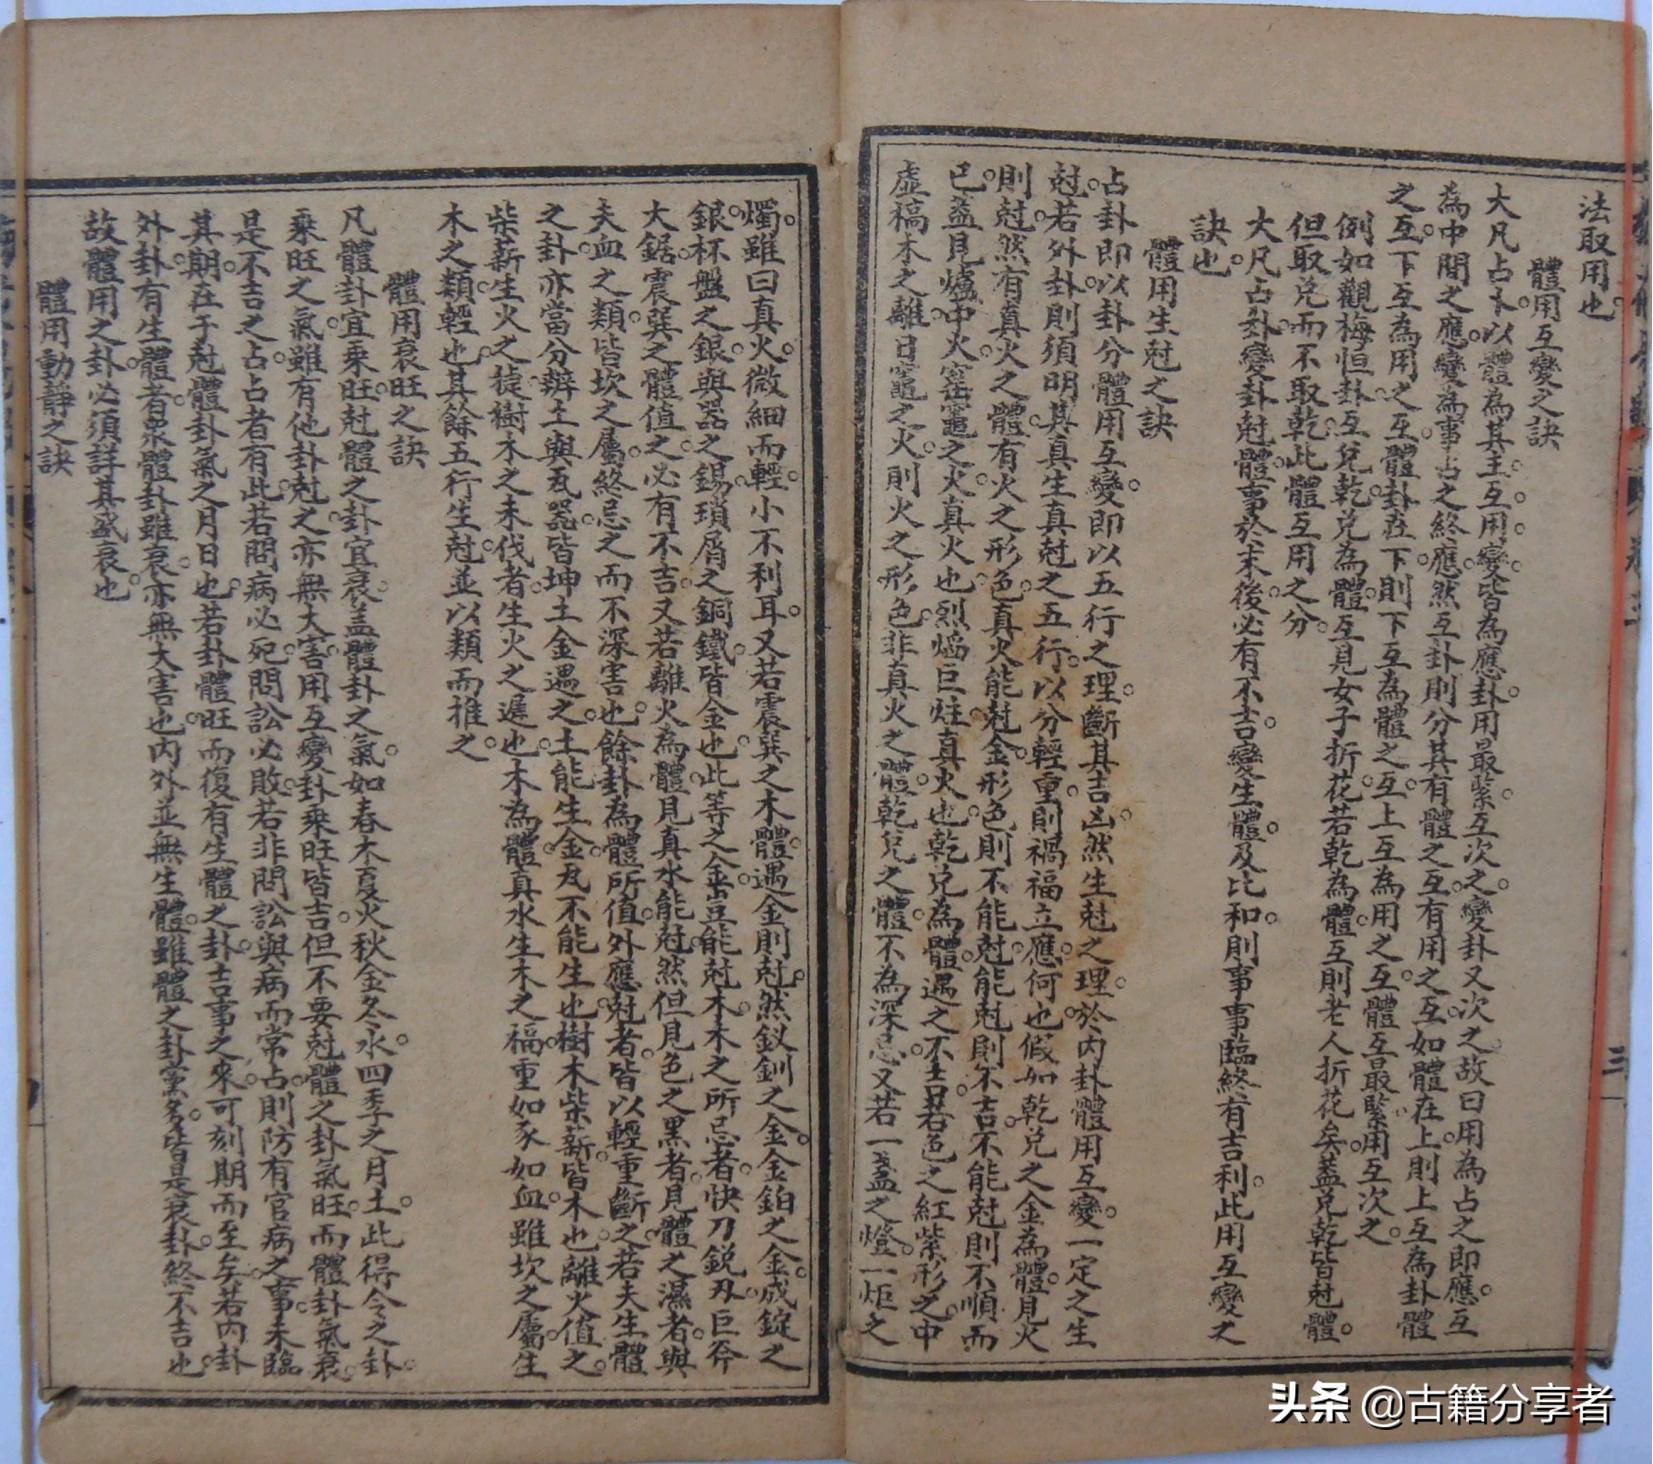 法取用也
體用互變之訣
大凡占卜以體為其主互用變皆為應卦用最緊互次之變卦又次之故曰用為占之即應互
為中間之應變為事占之終應然互卦則分其有體之互有用之互如體在上則上互為卦體
之互下互為用之互體卦在下則下互為體之互上互為用之互體互最緊用互次之
例如觀梅恒卦互兌乾兌為體互見女子折花若乾為體互則老人折花矣蓋兌乾皆尅體
但取兌而不取乾此體互用之分
大凡占卦變卦尅體事於末後必有不吉變生體及比和則事事臨終有吉利此用互變之
訣也
體用生尅之訣
占卦即以卦分體用互變即以五行之理斷其吉凶然生尅之理於内卦體用互變一定之生
尅若外卦則須明其真生真尅之五行以分輕重則禍福立應何也假如乾兌之金為體見火
則尅然有真火之體有火之形色真火能尅金形色則不能尅能尅則不吉不能尅則不順而
已蓋見爐中火窰竈之火真火也烈焰巨炷真火也乾兌為體遇之不吉若色之紅紫形之中
虛槁木之離日竈之火則火之形色非真火之體乾兌之體不為深忌又若一盞之燈一炬之
燭雖曰真火微細而輕小不利耳又若震巽之木體遇金則尅然釵釧之金金鉑之金成錠之
銀杯盤之銀與器之錫瑣屑之銅鐵皆金也此等之金豈能尅木木之所忌者快刀銳刃巨斧
大鋸震巽之體值之必有不吉又若離火為體見真水能尅然但見色之黑者見體之濕者與
夫血之類皆坎之屬終忌之而不深害也餘卦為體所值外應尅者皆以輕重斷之若夫生體
之卦亦當分辨土與瓦器皆坤土金遇之土能生金瓦不能生也樹木柴薪皆木也離火值之
柴薪生火之㨗樹木之未伐者生火之遲也木為體真水生木之福重如豕如血雖坎之屬生
木之類輕也其餘五行生尅並以類而推之
體用衰旺之訣
凡體卦宜乘旺尅體之卦宜衰盖體卦之氣如春木夏火秋金冬水四季之月土此得令之卦
乘旺之氣雖有他卦尅之亦無大害用互變卦乘旺皆吉但不要尅體之卦氣旺而體卦氣衰
是不吉之占占者有此若問病必死問訟必敗若非問訟與病而常占則防有官病之事未臨
其期在于尅體卦氣之月日也若卦體旺而復有生體之卦吉事之來可刻期而至矣若内卦
外卦有生體者眾體卦雖衰亦無大害也内外並無生體雖體之卦黨多皆是衰卦終不吉也
故體用之卦必須詳其盛衰也
體用動靜之訣
三
头条 @古籍分享者